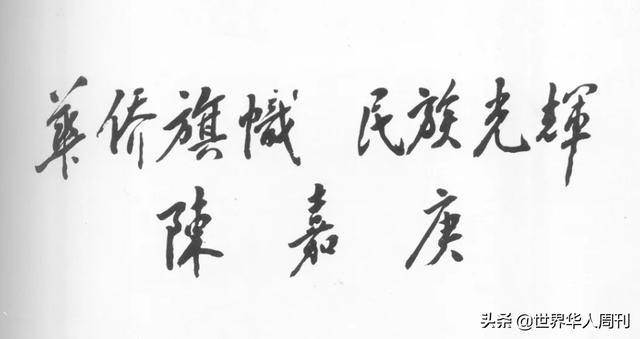 華侨旗幟 民族光輝
陳嘉庚
头条 @世界华人周刊